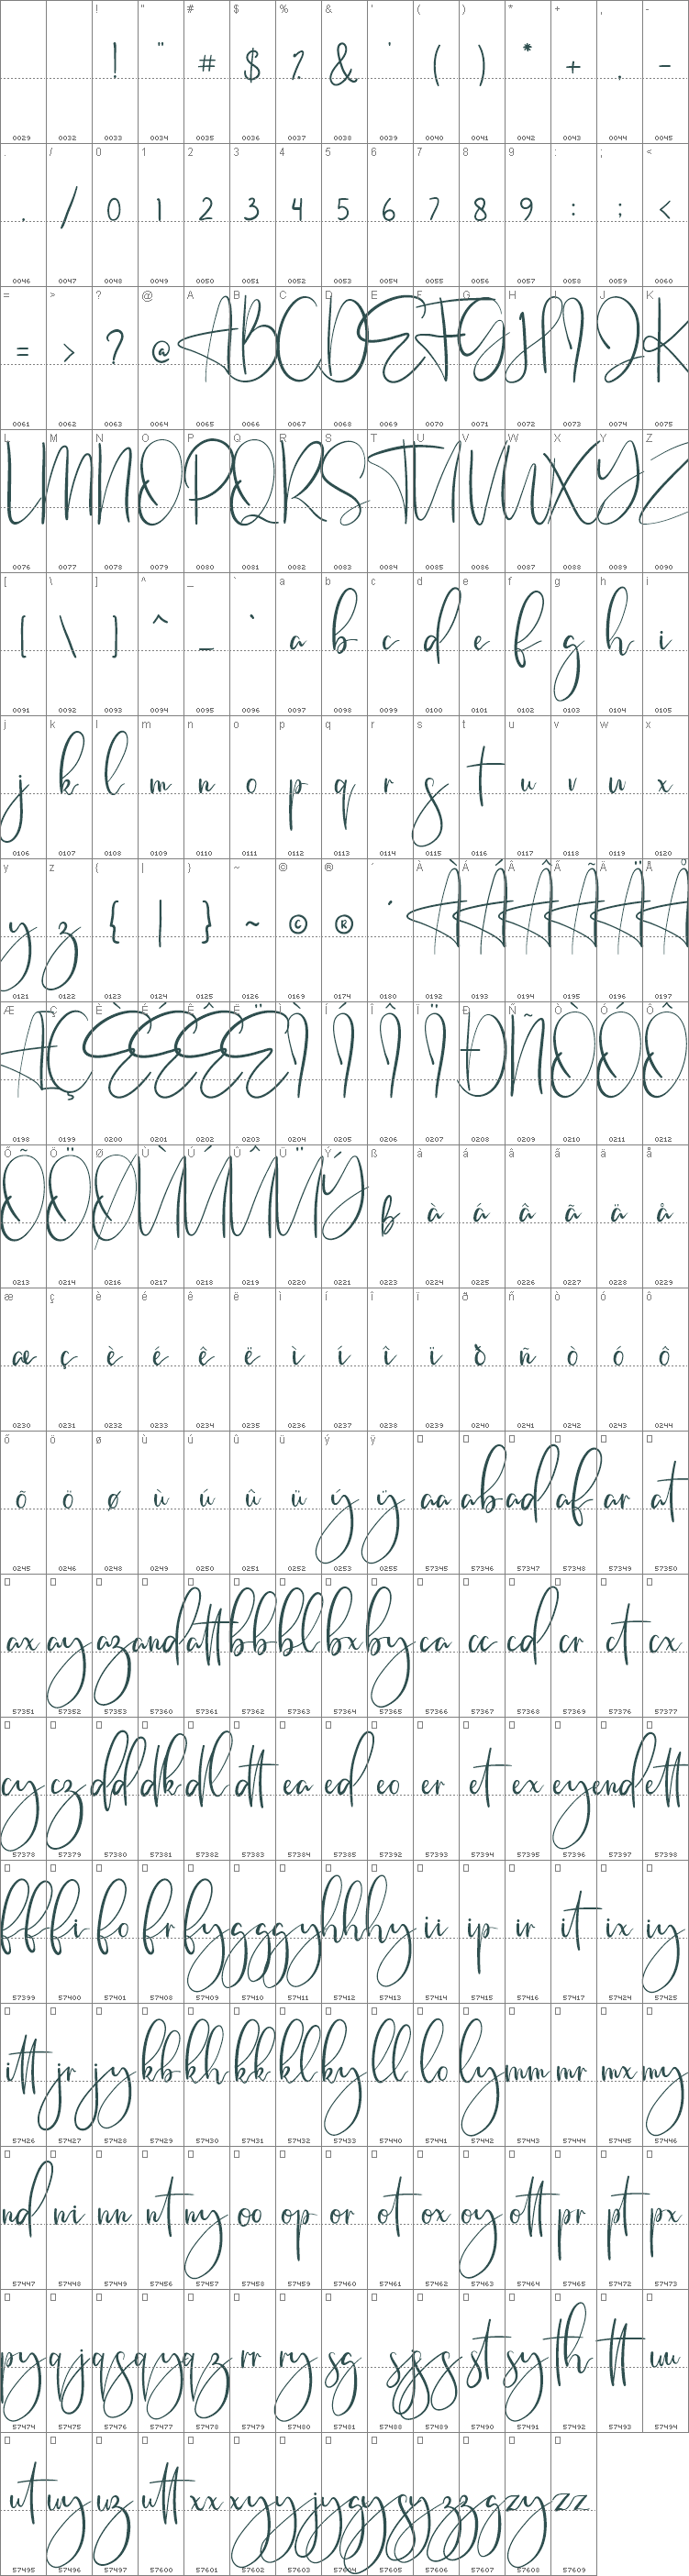 ! " # $ % & ' ( ) * + , -
! " # $ % & ' ( ) * + , -
0029 0032 0033 0034 0035 0036 0037 0038 0039 0040 0041 0042 0043 0044 0045
. / 0 1 2 3 4 5 6 7 8 9 : ; <
. / 0 1 2 3 4 5 6 7 8 9 : ; <
0046 0047 0048 0049 0050 0051 0052 0053 0054 0055 0056 0057 0058 0059 0060
= > ? @ A B C D E F G H I J K
= > ? @ A B C D E F G H I J K
0061 0062 0063 0064 0065 0066 0067 0068 0069 0070 0071 0072 0073 0074 0075
L M N O P Q R S T U V W X Y Z
L M N O P Q R S T U V W X Y Z
0076 0077 0078 0079 0080 0081 0082 0083 0084 0085 0086 0087 0088 0089 0090
[ \ ] ^ _ ` a b c d e f g h i
[ \ ] ^ _ ` a b c d e f g h i
0091 0092 0093 0094 0095 0096 0097 0098 0099 0100 0101 0102 0103 0104 0105
j k l m n o p q r s t u v w x
j k l m n o p q r s t u v w x
0106 0107 0108 0109 0110 0111 0112 0113 0114 0115 0116 0117 0118 0119 0120
y z { | } ~ © ® ´ À Á Â Ã Ä Å
y z { | } ~ © ® ´ À Á Â Ã Ä Å
0121 0122 0123 0124 0125 0126 0169 0174 0180 0192 0193 0194 0195 0196 0197
Æ Ç È É Ê Ë Ì Í Î Ï Ð Ñ Ò Ó Ô
Æ Ç È É Ê Ë Ì Í Î Ï Ð Ñ Ò Ó Ô
0198 0199 0200 0201 0202 0203 0204 0205 0206 0207 0208 0209 0210 0211 0212
Õ Ö Ø Ù Ú Û Ü Ý ß à á â ã ä å
Õ Ö Ø Ù Ú Û Ü Ý ß à á â ã ä å
0213 0214 0216 0217 0218 0219 0220 0221 0223 0224 0225 0226 0227 0228 0229
æ ç è é ê ë ì í î ï ð ñ ò ó ô
æ ç è é ê ë ì í î ï ð ñ ò ó ô
0230 0231 0232 0233 0234 0235 0236 0237 0238 0239 0240 0241 0242 0243 0244
õ ö ø ù ú û ü ý ÿ
õ ö ø ù ú û ü ý ÿ aa ab ad af ar at
0245 0246 0248 0249 0250 0251 0252 0253 0255 57345 57346 57347 57348 57349 57350
ax ay az and att bb bl bx by ca cc cd cr ct cx
57351 57352 57353 57360 57361 57362 57363 57364 57365 57366 57367 57368 57369 57376 57377
cy cz dd dk dl dt ea ed eo er et ex ey end ett
57378 57379 57380 57381 57382 57383 57384 57385 57392 57393 57394 57395 57396 57397 57398
ff fi fo fr fy gg gy hh hy ii ip ir it ix iy
57399 57400 57401 57408 57409 57410 57411 57412 57413 57414 57415 57416 57417 57424 57425
itt jr jy kb kh kk kl ky ll lo ly mm mr mx my
57426 57427 57428 57429 57430 57431 57432 57433 57440 57441 57442 57443 57444 57445 57446
nd ni nn nt ny oo op or ot ox oy ott pr pt px
57447 57448 57449 57456 57457 57458 57459 57460 57461 57462 57463 57464 57465 57472 57473
py qj qs qy qz rr ry sg sj ss st sy th tt uu
57474 57475 57476 57477 57478 57479 57480 57481 57488 57489 57490 57491 57492 57493 57494
ut uy uz utt xx xy yj yg ys yz zg zy zz
57495 57496 57497 57600 57601 57602 57603 57604 57605 57606 57607 57608 57609